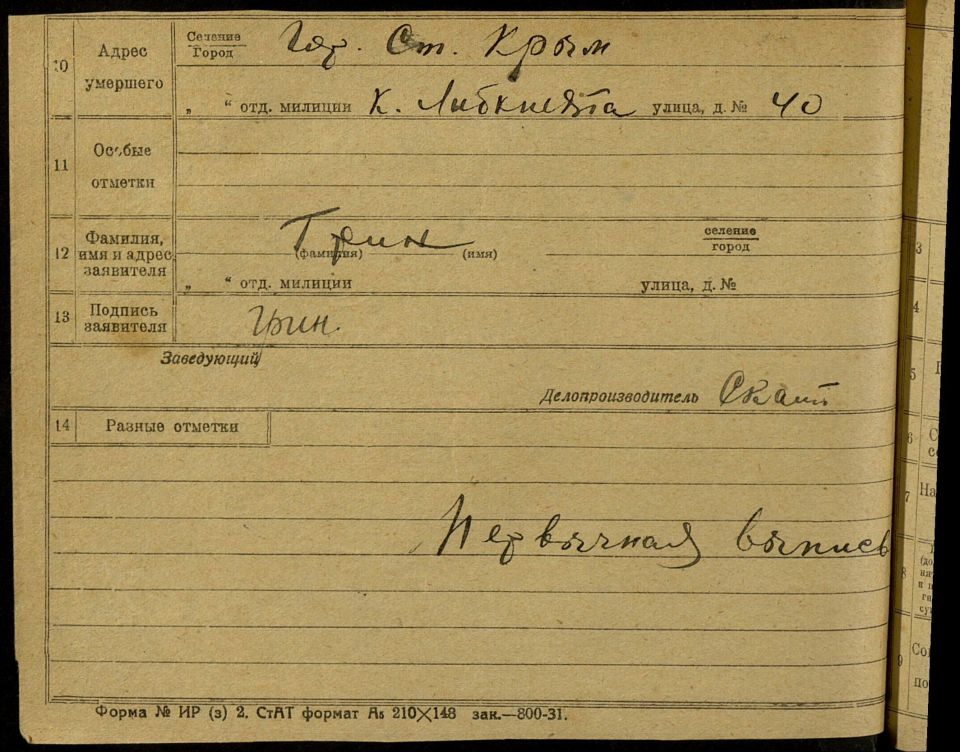 10 Адрес умершего
Селение
Город
Гор. Ст. Крым
„ “ отд. милиции К. Либкнехта улица, д. № 40
11 Особые отметки
12 Фамилия, имя и адрес заявителя
Грин
(фамилия) (имя)
селение
город
„ “ отд. милиции улица, д. №
13 Подпись заявителя
Грин.
Заведующий
Делопроизводитель
14 Разные отметки
Первичная выпись
Форма № ИР (з) 2. СтАТ формат А5 210×148 зак.—800-31.
3
4
5
6
7 На
8
9 Со
по